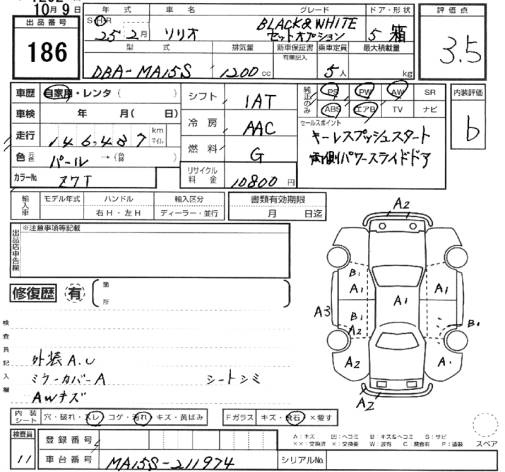 10月9日
出品番号
186
年式
車名
グレード
ドア・形状
SH R 25年2月
ソリオ
BLACK&WHITE
セットオプション
5 箱
型式
排気量
新車保証書
有無記入
乗車定員
最大積載量
DBA-MA15S
1200cc
5人
kg
評価点
3.5
車歴
自家用・レンタ ( )
車検
年 月( 日)
走行
146487
km
マイル
色
元色
パール → (色替 )
カラーNo
Z7T
シフト
1AT
冷房
AAC
燃料
G
リサイクル
料金
10800円
純正のみ
PS PW AW SR
ABS エアB TV ナビ
セールスポイント
キーレスプッシュスタート
両側パワースライドドア
内装評価
b
輸入車
モデル年式
ハンドル
右H・左H
輸入区分
ディーラー・並行
書類有効期限
月 日迄
出品店申告欄
※注意事項等記載
修復歴
有
箇所
検査員記入欄
外装A.U
ミラーカバーA
AWキズ
シートシミ
A2
B1
A1
A1
A1
A3
B1
A2
B1
A2
A1
A2
内装
シート
穴・破れ・スレ コゲ・汚れ キズ・黄ばみ
Fガラス
キズ・飛石 ×要す
検査員
11
登録番号
車台番号
MA15S-211974
シリアルNo.
スペア